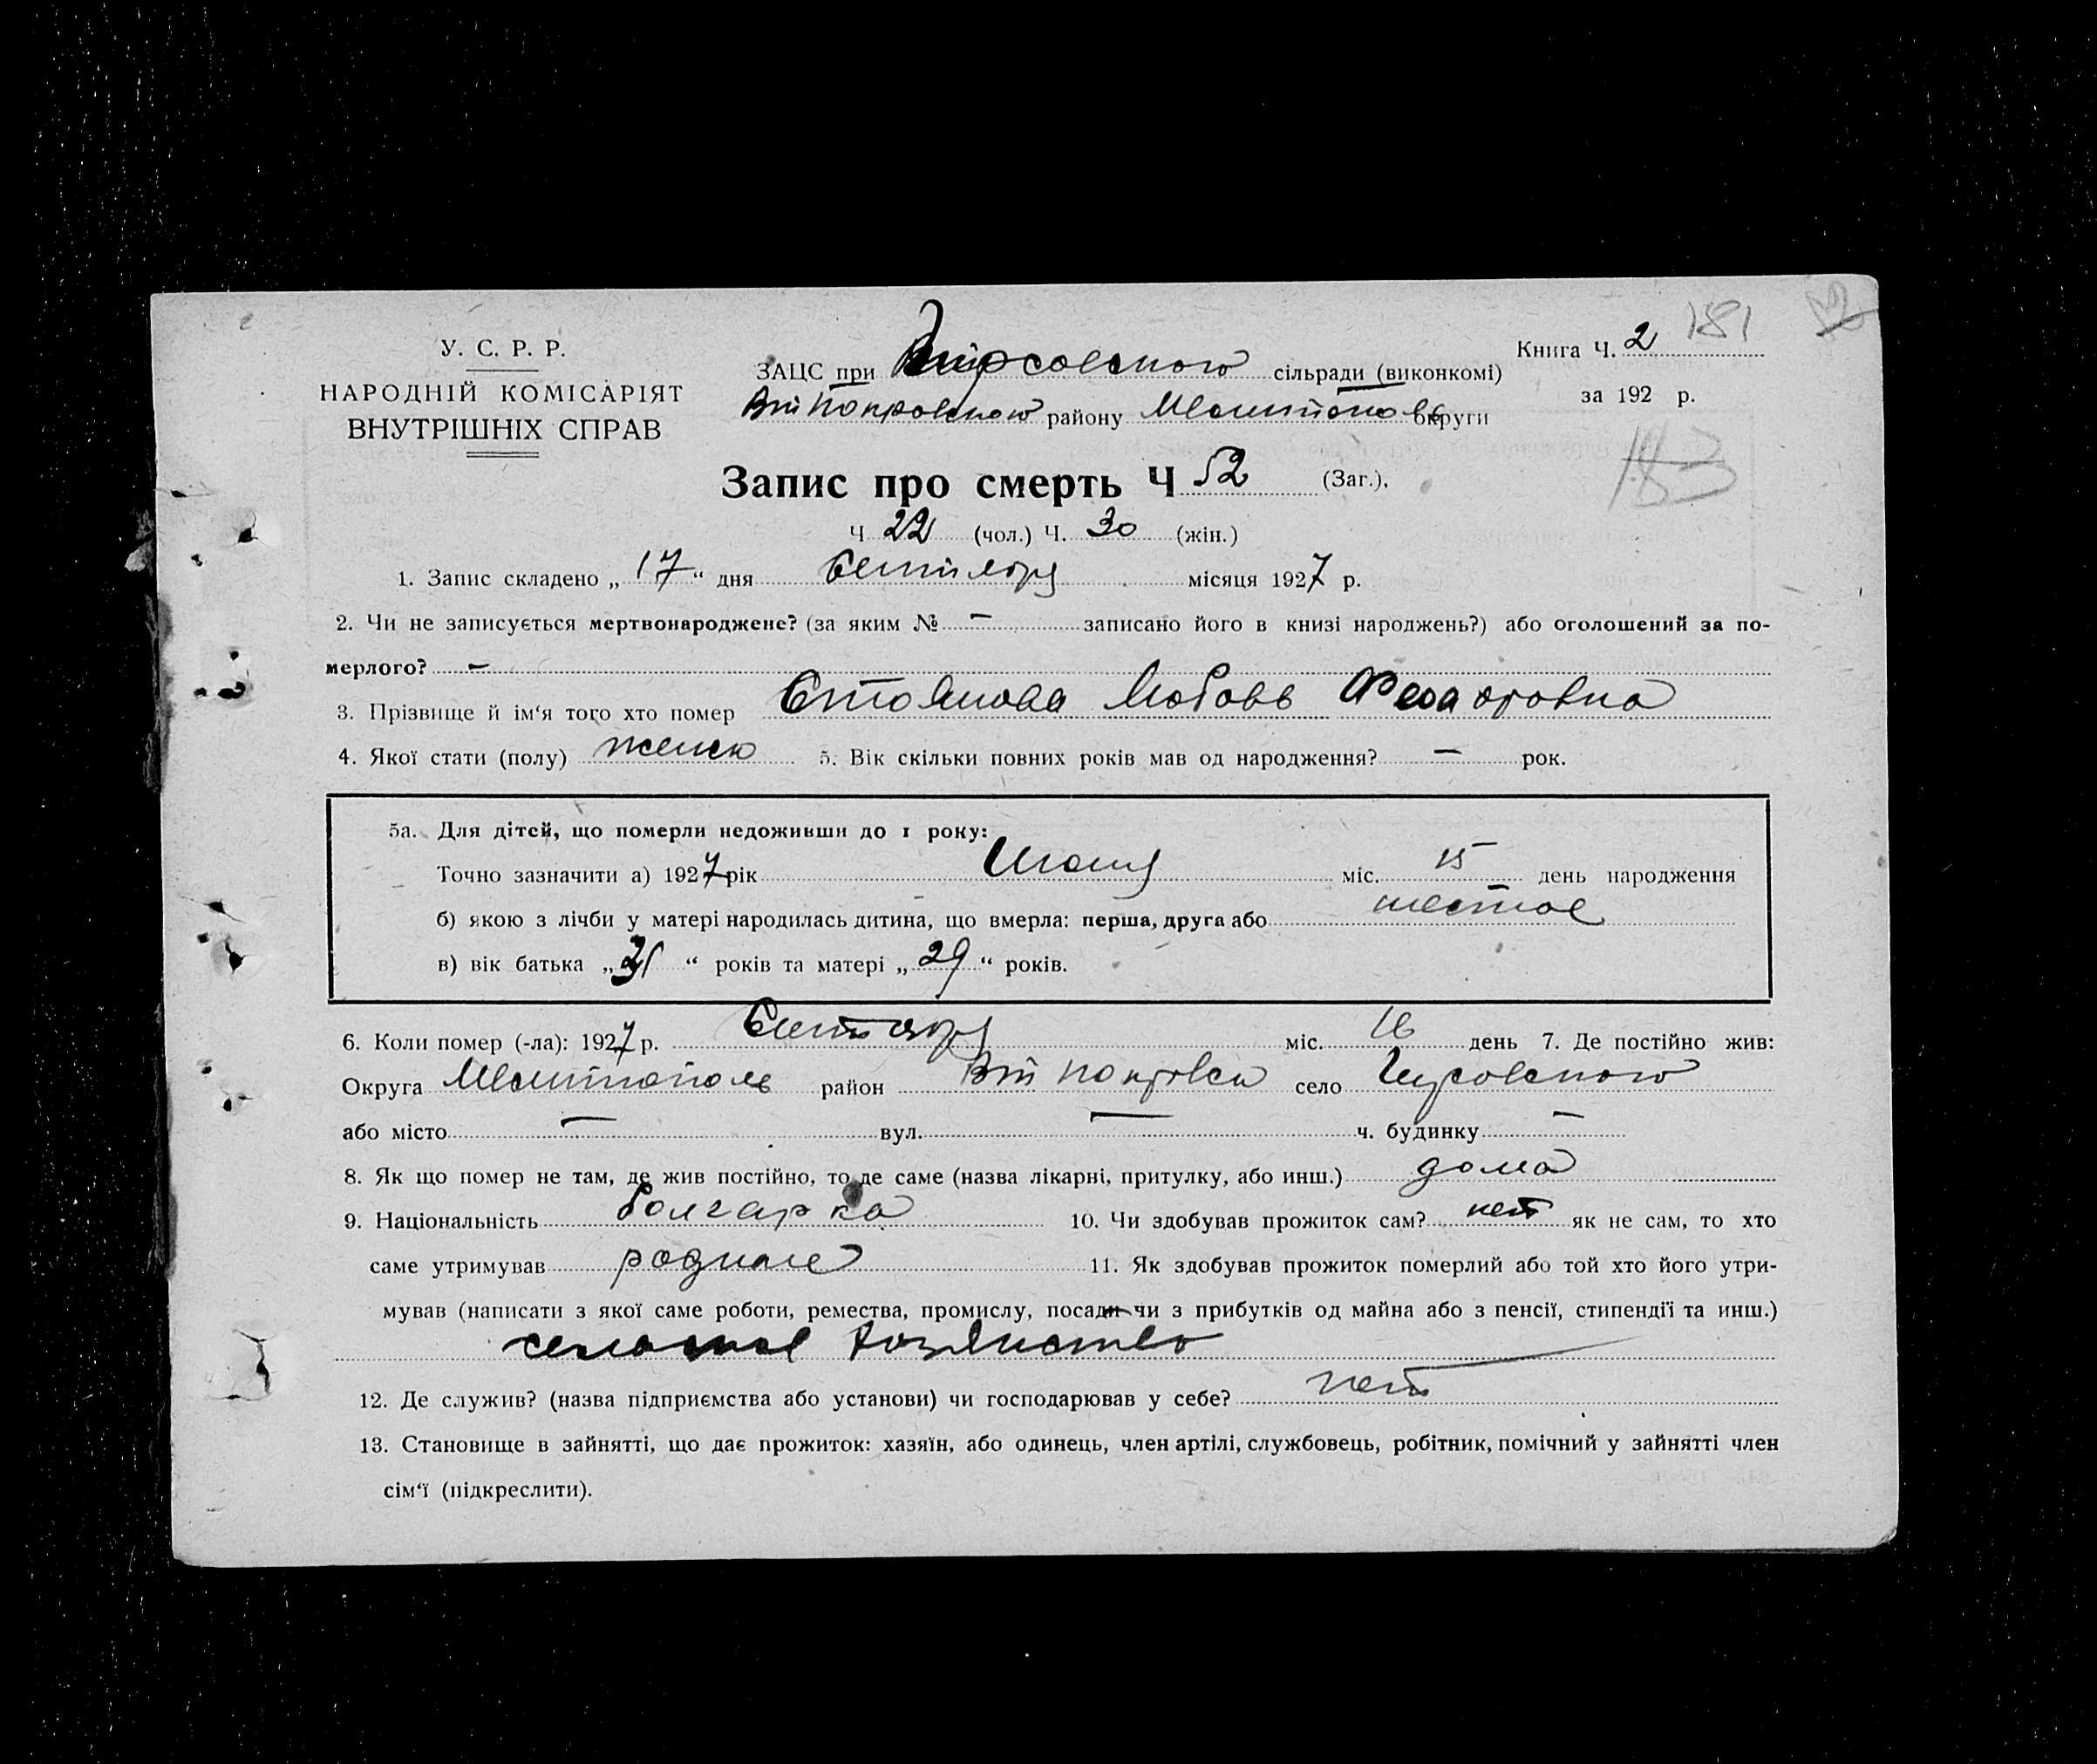 У. С. Р. Р.
НАРОДНІЙ КОМІСАРІЯТ
ВНУТРІШНІХ СПРАВ
ЗАЦС при сільради (виконкомі)
району Мелитополь округи
Книга Ч. 2 181
за 192 р.
183
Запис про смерть Ч 52 (Заг.),
Ч 22 (чол.) Ч. 30 (жін.)
1. Запис складено „ 17 “ дня Сентября місяця 1927 р.
2. Чи не записується мертвонароджене? (за яким № — записано його в книзі народжень?) або оголошений за по-
мерлого? —
3. Прізвище й ім‘я того хто помер Стоянова Любовь Феодоровна
4. Якої стати (полу) женск 5. Вік скільки повних років мав од народження? — рок.
5а. Для дітей, що померли недоживши до 1 року:
Точно зазначити а) 1927 рік міс. 15 день народження
б) якою з лічби у матері народилась дитина, що вмерла: перша, друга або шестое
в) вік батька „ 31 “ років та матері „ 29 “ років.
6. Коли помер (-ла): 1927 р. Сентября міс. 16 день 7. Де постійно жив:
Округа Мелитополь район село
або місто — вул. — ч. будинку —
8. Як що помер не там, де жив постійно, то де саме (назва лікарні, притулку, або инш.) дома
9. Національність болгарка 10. Чи здобував прожиток сам? нет як не сам, то хто
саме утримував родные 11. Як здобував прожиток померлий або той хто його утри-
мував (написати з якої саме роботи, ремества, промислу, посади чи з прибутків од майна або з пенсії, стипендії та инш.)
сельское хозяйство
12. Де служив? (назва підприємства або установи) чи господарював у себе? нет
13. Становище в зайнятті, що дає прожиток: хазяїн, або одинець, член артілі, службовець, робітник, помічний у зайнятті член
сім‘ї (підкреслити).